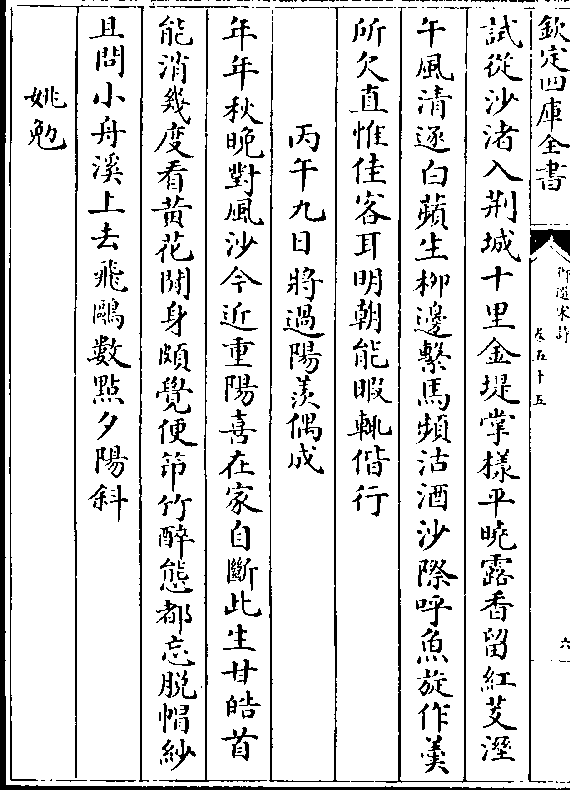 欽定四庫全書
御選宋詩
卷五十五
六
試從沙渚入荆城十里金堤掌樣平曉露香留紅芰溼
午風清逐白蘋生柳邊繫馬頻沽酒沙際呼魚旋作羮
所欠直惟佳客耳明朝能暇輒偕行
丙午九日將過陽羡偶成
年年秋晚對風沙今近重陽喜在家自斷此生甘皓首
能消幾度看黄花閒身頗覺便笻竹醉態都忘脱帽紗
且問小舟溪上去飛鷗數點夕陽斜
姚勉